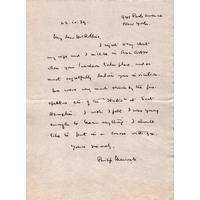 22.10.39.
941 Park Avenue
New York.
My dear Mr
I regret very that
my wife and I will be in Ann Arbor
when your luncheon takes place, and so
must regretfully decline your invitation.
We were very much struck by the
of the "Studio" at East
Hampton. I wish I felt I was young
enough to learn anything. I should
like to put in a course with you.
Yours sincerely,
Philip